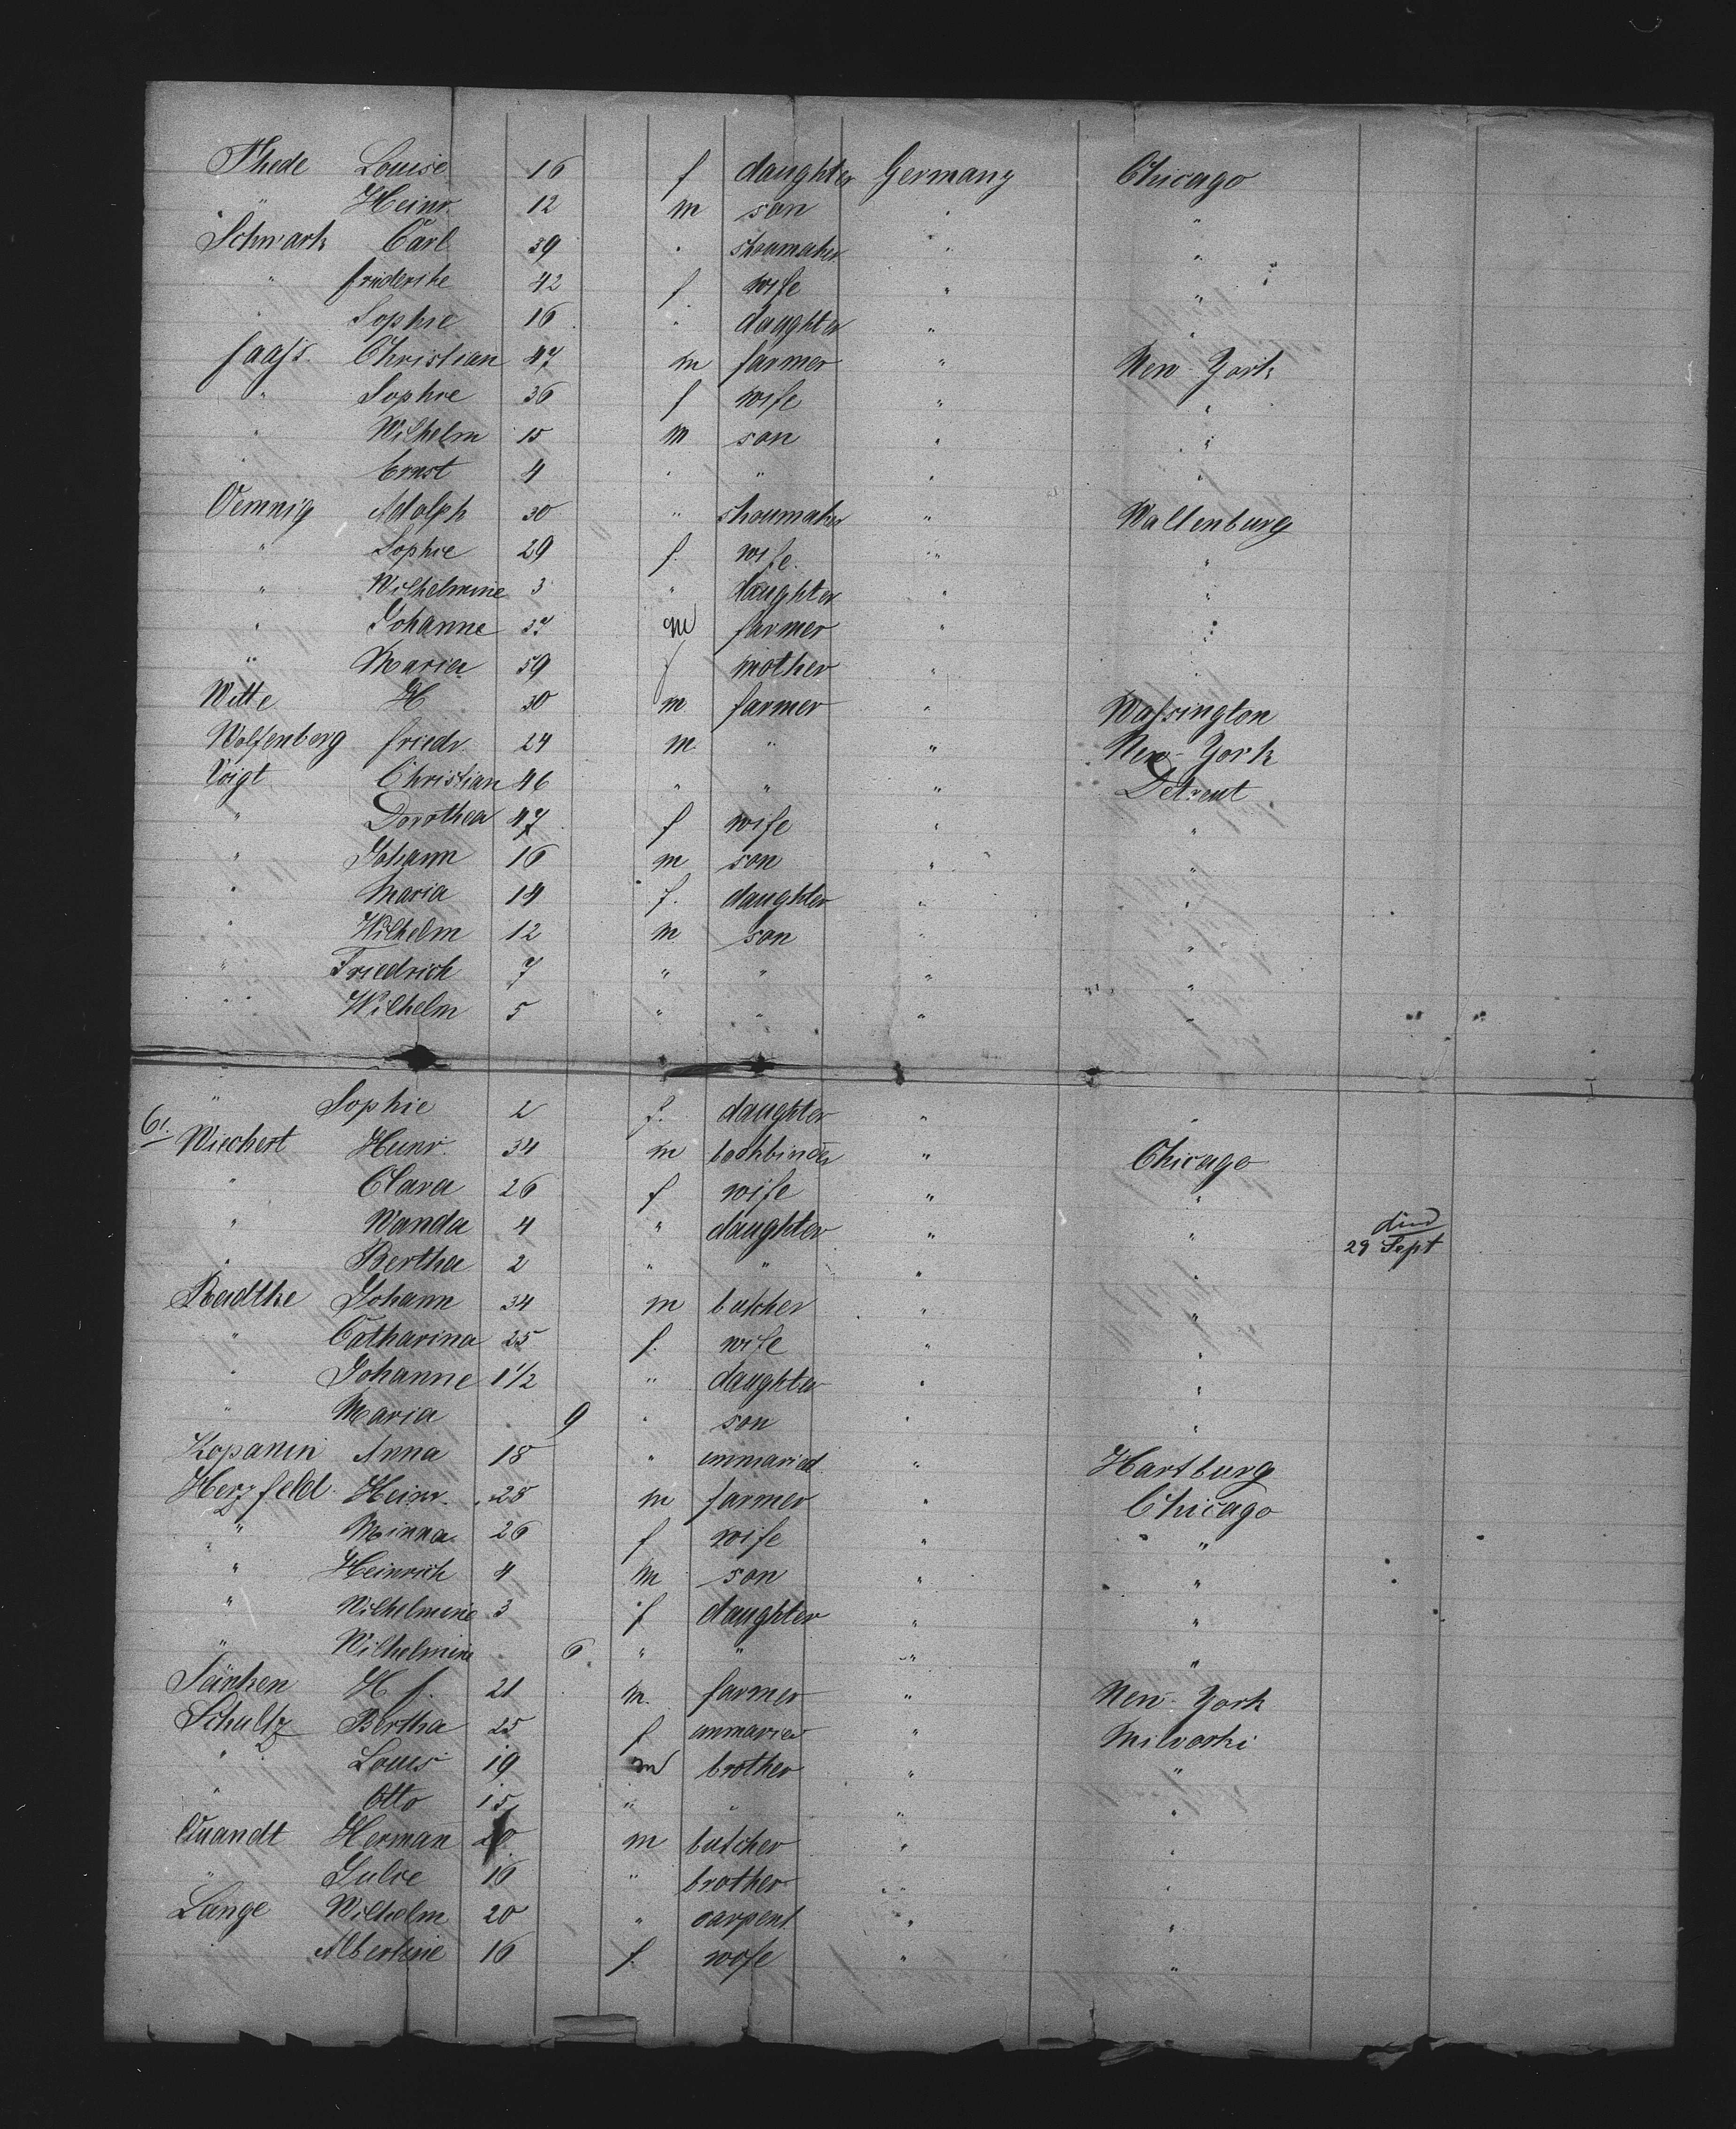 Thede Louise 16 f daughter Germany Chicago
" Heinr. 12 m son " "
Schwark Carl 39 " shoumaker " "
" friederike 42 f. wife " "
" Sophie 16 " daughter " "
Christian 47 m farmer " New-York
" Sophie 36 f wife " "
" Wilhelm 15 m son " "
" Ernst 4 " " " "
Oemnig Adolph 30 " shoumaker " Wallenburg
" Sophie 29 f. wife. " "
" Wilhelmine 3 " daughter " "
" Johanne m farmer " "
" Maria 59 f mother " "
Witte H 30 m farmer " Wassington
Wolfenberg friedr. 24 m. " " New-York
Voigt Christian 46 " " " Detreut
" Dorothea 47 f wife " "
" Johann 16 m son " "
" Maria 14 f. daughter " "
" Wilhelm 12 m son " "
" Friedrich 7 " " " "
" Wilhelm 5 " " " "
" Sophie 2 f. daughter " "
61. Wiechert Heinr. 34 m bookbinder " Chicago
" Clara 26 f wife " "
" Wanda 4 " daughter " " died 29 Sept
" Bertha 2 " " " "
Radtke Johann 34 m butcher " "
" Catharina 25 f. wife " "
" Johanne 1 1/2 " daughter " "
" Maria . 9 " son " "
Kopanin Anna 18 " unmaried " Hartburg
Herzfeld Heinr. 28 m farmer " Chicago
" Minna 26 f wife " "
" Heinrich 4 m son " "
" Wilhelmine 3 f daughter " "
" Wilhelmine . 6 " " " "
H f. 21 m. farmer " New-York
Schultz Bertha 25 f unmaried " Milvorki
" Louis 19 m brother " "
" Otto 15 " " " "
Quandt Herman 20 m butcher " "
" Julie 16 " brother " "
Lange Wilhelm 20 " carpent. " "
Albertine 16 f. wofe " "